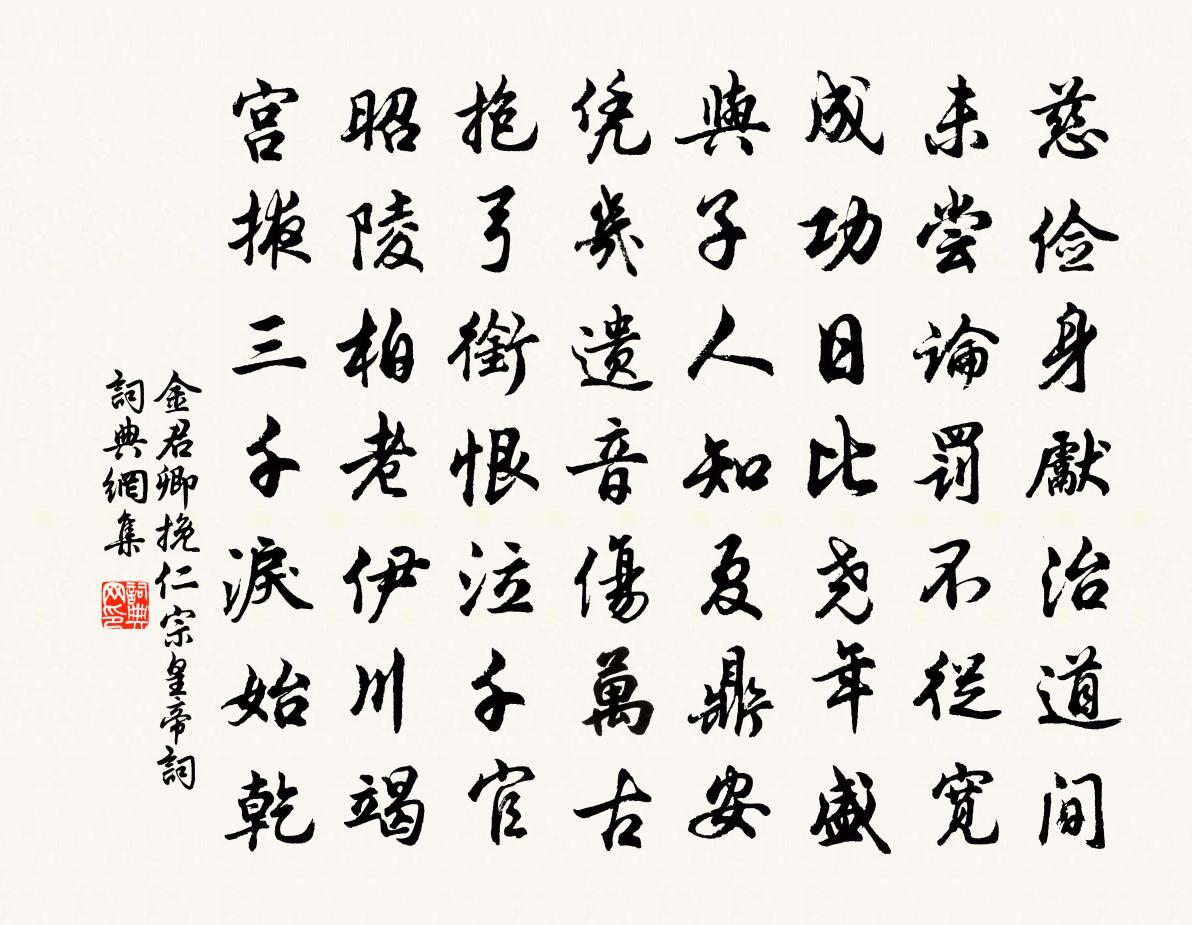 慈俭身獻治道间
未尝論罰不從寬
成功日比尧年盛
與子人知夏鼎安
凭幾遗音傷萬古
抱弓銜恨泣千官
昭陵柏老伊川竭
宫掖三千淚始乾
金君卿挽仁宗皇帝詞
詞典網集
詞典网印